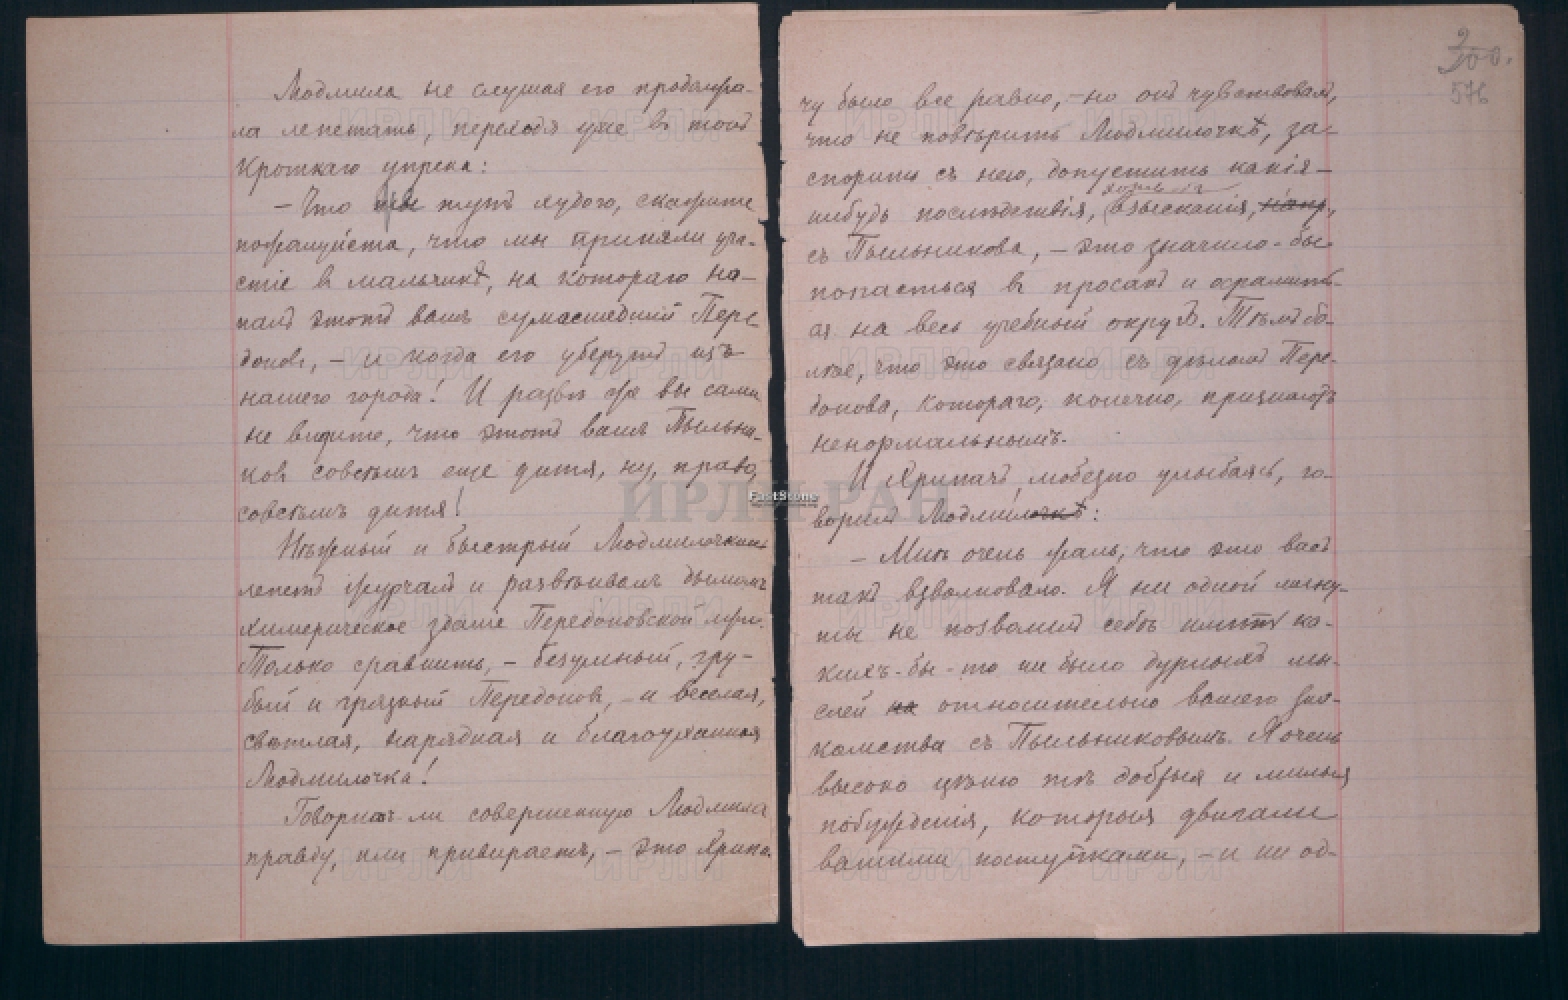 Людмила не слушая его продолжа-
ла лепетать, переходя уже в тонъ
кроткаго упрека:
– Что тутъ худого, скажите
пожалуйста, что мы приняли уча-
стіе в мальчикѣ, на котораго на-
палъ этотъ вашъ сумасшедшій Пере
доновъ, – и когда его уберутъ изъ
нашего города! И развѣ же вы сами
не видите, что этотъ вашъ Пыльни-
ковъ совсѣмъ еще дитя, ну, право,
совсѣмъ дитя!
Нѣжный и быстрый Людмилочкинъ
лепетъ журчалъ и развѣивалъ дымомъ
химерическое зданіе Передоновской лжи.
Только сравнить, – безумный, гру-
бый и грязный Передоновъ, – и веселая,
свѣтлая, нарядная и благоуханная
Людмилочка!
Говоритъ ли совершенную Людмила
правду, или привираетъ, – это Хрипа-
2
200.
576
чу было все равно, – но онъ чувствовалъ,
что не повѣрить Людмилочкѣ, за-
спорить съ нею, допустить какія-
нибудь послѣдствія, хоть взысканія, напр,
съ Пыльникова, – это значило-бы
попасться в просакъ и осрамить-
ся на весь учебный округъ. Тѣмъ бо-
лѣе, что это связано съ дѣломъ Пере-
донова, котораго, конечно, признаютъ
ненормальнымъ.
И Хрипачъ, любезно улыбаясь, го-
ворилъ Людмилочкѣ:
– Мнѣ очень жаль, что это васъ
такъ взволновало. Я ни одной мину-
ты не позволилъ себѣ имѣть ка-
кихъ-бы-то ни было дурныхъ мы-
слей на относительно вашего зна-
комства съ Пыльниковымъ. Я очень
высоко цѣню тѣ добрыя и милыя
побужденія, которыя двигали
вашими поступками, – и ни од-
ИРЛИ РАН
FastStone